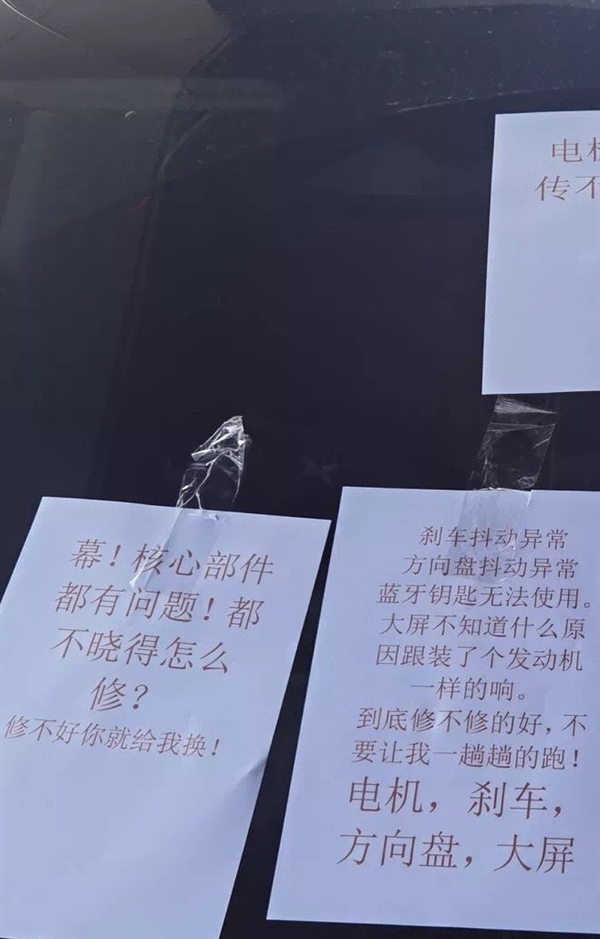 电机
传不
刹车抖动异常
方向盘抖动异常
蓝牙钥匙无法使用。
大屏不知道什么原
因跟装了个发动机
一样的响。
到底修不修的好，不
要让我一趟趟的跑！
电机，刹车，
方向盘，大屏
幕！核心部件
都有问题！都
不晓得怎么
修？
修不好你就给我换！